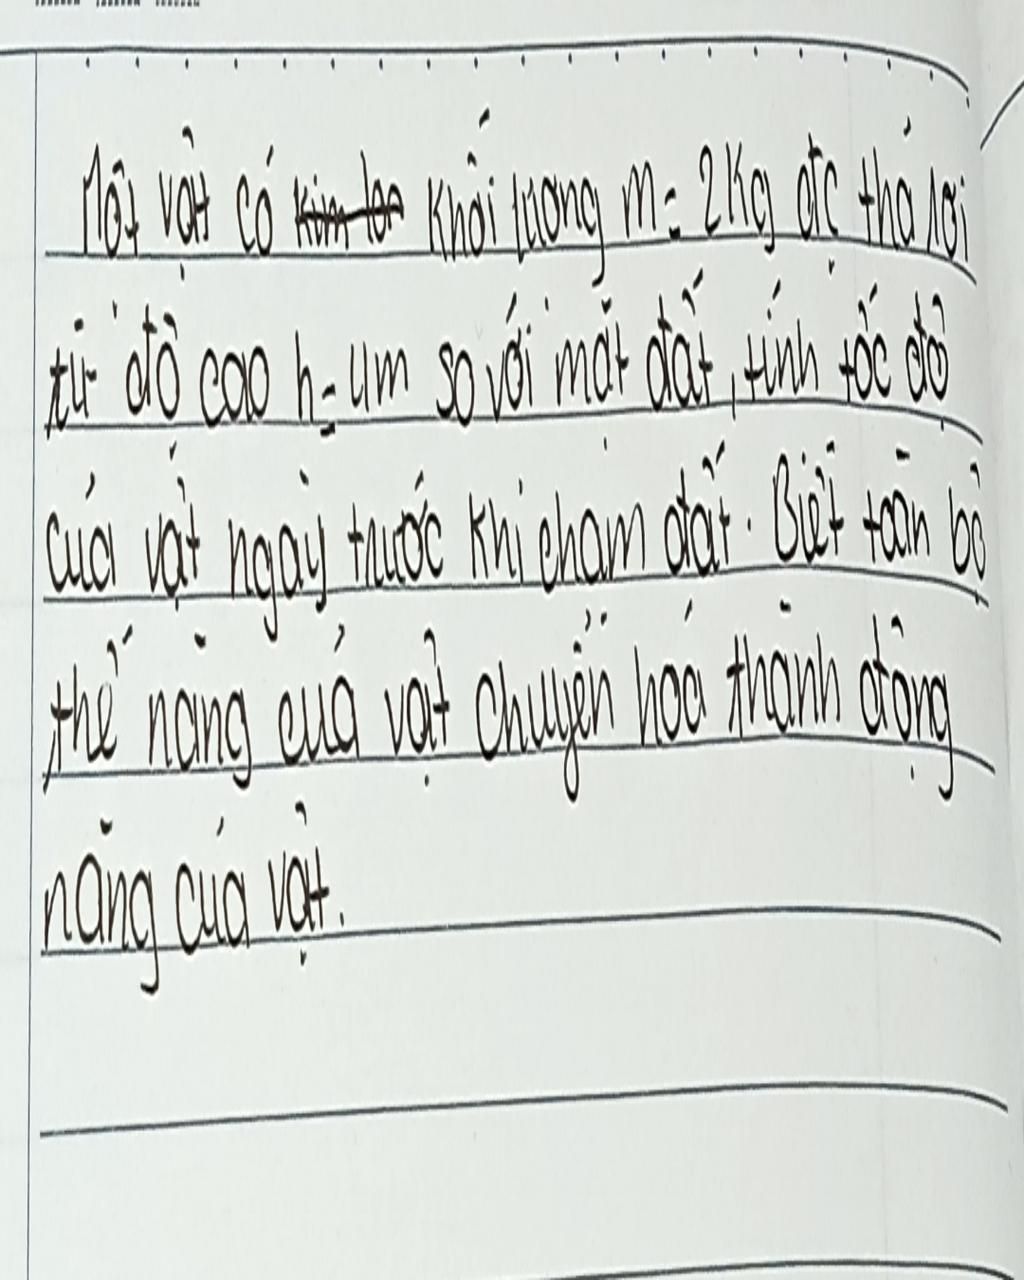 Một vật có kim loa khối lượng m = 2kg đc thả rơi
từ độ cao h = 4m so với mặt đất, tính tốc độ
của vật ngay trước khi chạm đất. Biết toàn bộ
thế năng của vật chuyển hoá thành động
năng của vật.